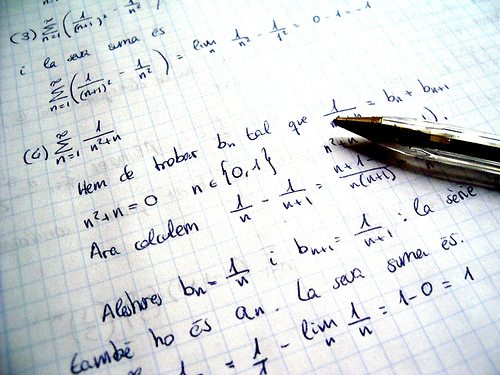 (3) ∑_{n=1}^{∞} (1/(n+1)² - 1/n²)
i la seva suma és
∑_{n=1}^{∞} (1/(n+1)² - 1/n²) = lim_n 1/n² - 1/1² = 0 - 1 = -1
(4) ∑_{n=1}^{∞} 1/(n²+n)
Hem de trobar bn tal que 1/ = bn + bn+1
n²+n = 0 n ∈ {0,1}
Ara calculem 1/n - 1/(n+1) = n+1-/n(n+1)
Aleshores bn = 1/n i bn+1 = 1/(n+1) : la sèrie
també ho és an. La seva suma és.
= 1/1 - lim_n 1/n = 1-0 = 1